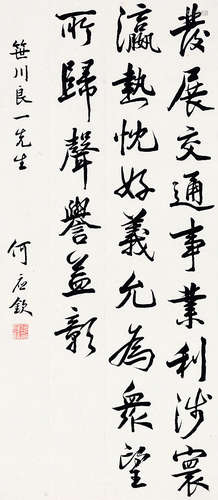 發展交通事業利涉寰
瀛熱忱好義允為眾望
所歸聲譽益彰
笹川良一先生
何應欽